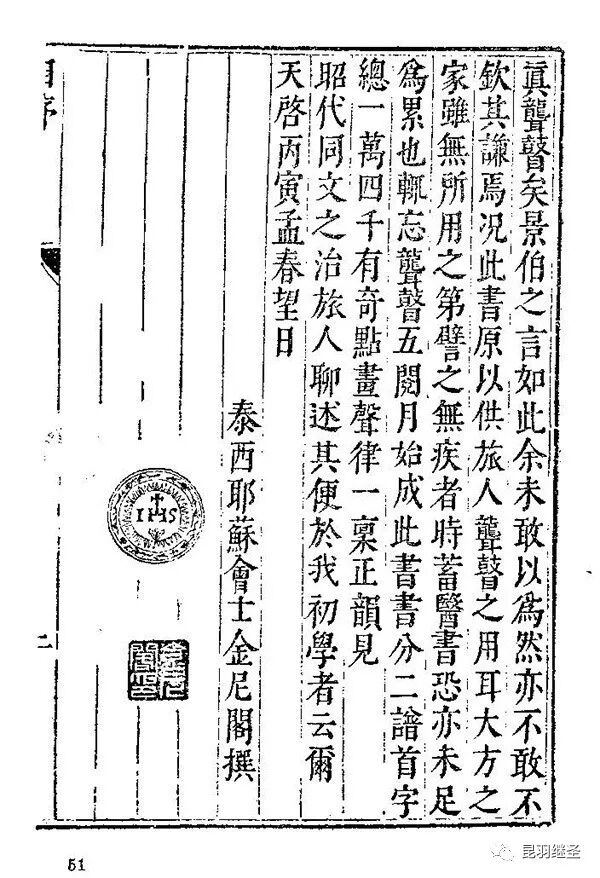 真聾瞽矣景伯之言如此余未敢以為然亦不敢不
欽其謙焉况此書原以供旅人聾瞽之用耳大方之
家雖無所用之第譬之無疾者時蓄醫書恐亦未足
為累也輒忘聾瞽五閱月始成此書書分二譜首字
總一萬四千有奇點畫聲律一稟正韻見
昭代同文之治旅人聊述其便於我初學者云爾
天啓丙寅孟春望日
泰西耶蘇會士金尼閣撰
IHS
自序
二
51
昆羽继圣